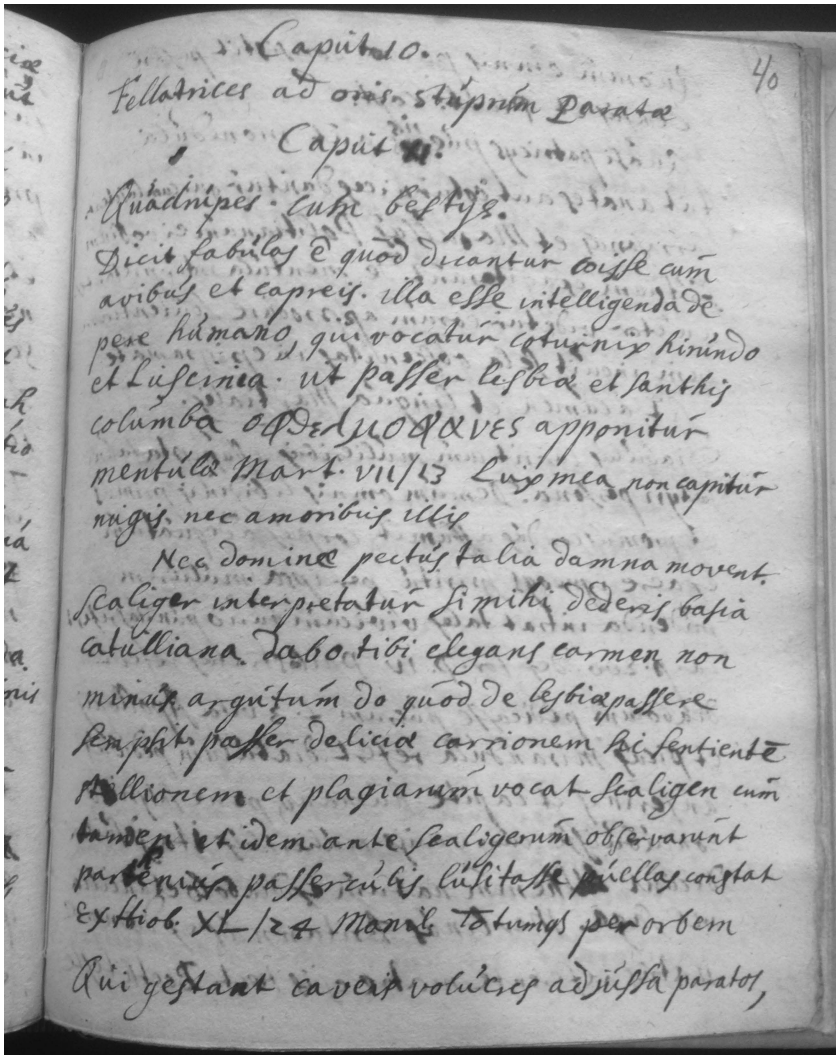 40
Caput 10.
Fellatrices ad oris stuprum Paratæ
Caput XI.
Quadrupes. cum bestijs.
Dicit fabulas ē quod dicantur coisse cum
avibus et capreis. illa esse intelligenda de
pere humano, qui vocatur coturnix hirundo
et Luscinia. ut passer lesbiæ et santhis
columba apponitur
mentulæ Mart. VII/13 Lux mea non capitur
nugis nec amoribus illis
Nec dominæ pectus talia damna movent.
Scaliger interpretatur si mihi dederis basia
catulliana. dabo tibi elegans carmen non
minus argutum do quod de lesbiæ passere
sempsit passer deliciæ carrionem hic sentientē
stellionem et plagiarum vocat scaligen cum
tamen et idem ante scaligerum observarunt
partenius passerculis lusitasse puellas constat
ex Hiob. XL/24 Manil. Totumqs per orbem
Qui gestant caveis volucres ad jussa paratos,